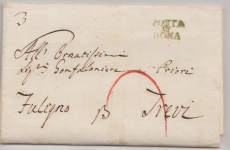 3
POSTA
DI
ROMA
Agl' Ornatissimi
Sig.ri Gonfaloniere e Priori
Fuligno Trevi